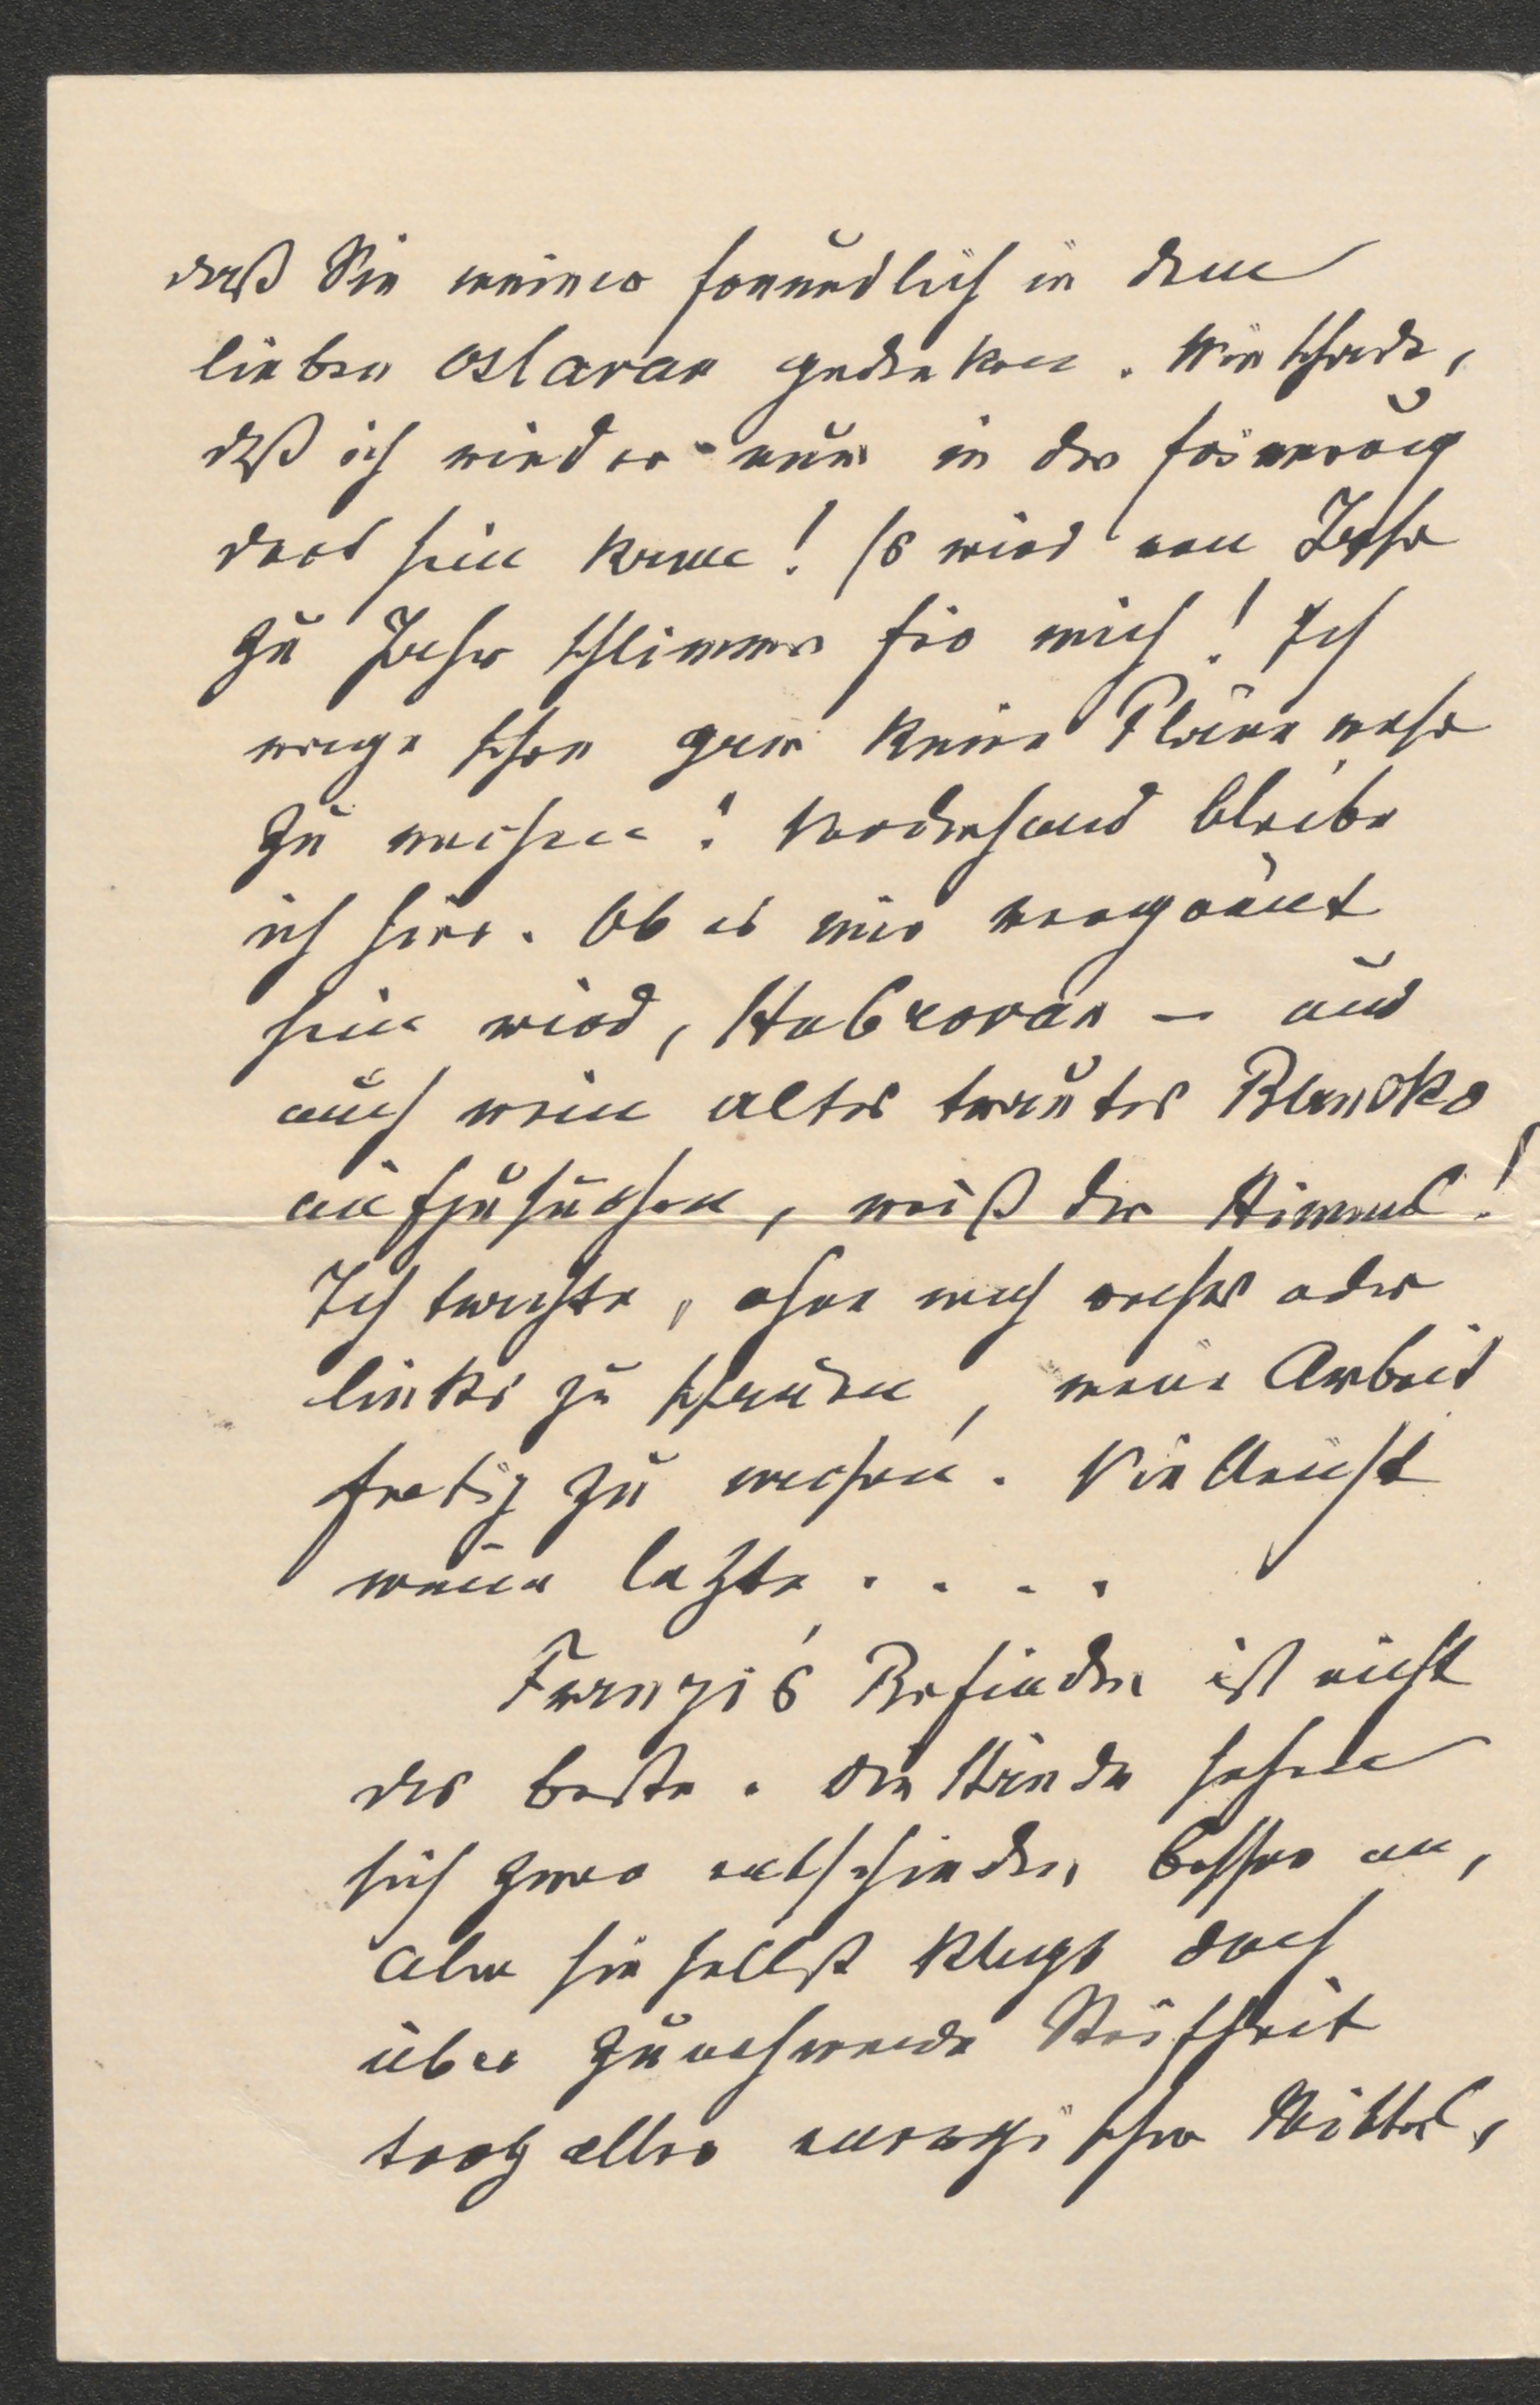 daß Sie meiner freundlich in dem
lieben Oslavan gedenken. Wie schade,
daß ich wieder nur in der Erinnerung
dort sein kann! Es wird von Jahr
zu Jahr schlimmer für mich! Ich
wage schon gar keine Pläne mehr
zu machen! Vorderhand bleibe
ich hier. Ob es mir vergönnt
sein wird, Habrovan — und
auch mein altes trautes Blansko
aufzusuchen, weiß der Himmel!
Ich trachte, ohne nach rechts oder
links zu schauen, meine Arbeit
fertig zu machen. Vielleicht
meine letzte . . . .
Franzi's Befinden ist nicht
das beste. Die Hände sehen
sich zwar entschieden besser an,
aber sie selbst klagt doch
über zunehmende Steifheit
trotz aller energischer Mittel,